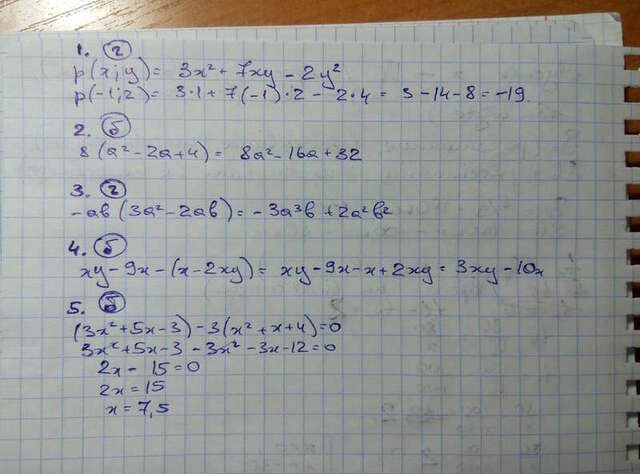 1. г
p(x;y) = 3x² + 7xy - 2y²
p(-1;2) = 3·1 + 7(-1)·2 - 2·4 = 3-14-8 = -19.
2. б
8(a²-2a+4) = 8a²-16a+32
3. г
-ab(3a²-2ab) = -3a³b + 2a²b²
4. б
xy-9x-(x-2xy) = xy-9x-x+2xy = 3xy-10x
5. б
(3x²+5x-3)-3(x²+x+4)=0
3x²+5x-3-3x²-3x-12=0
2x-15=0
2x=15
x=7,5